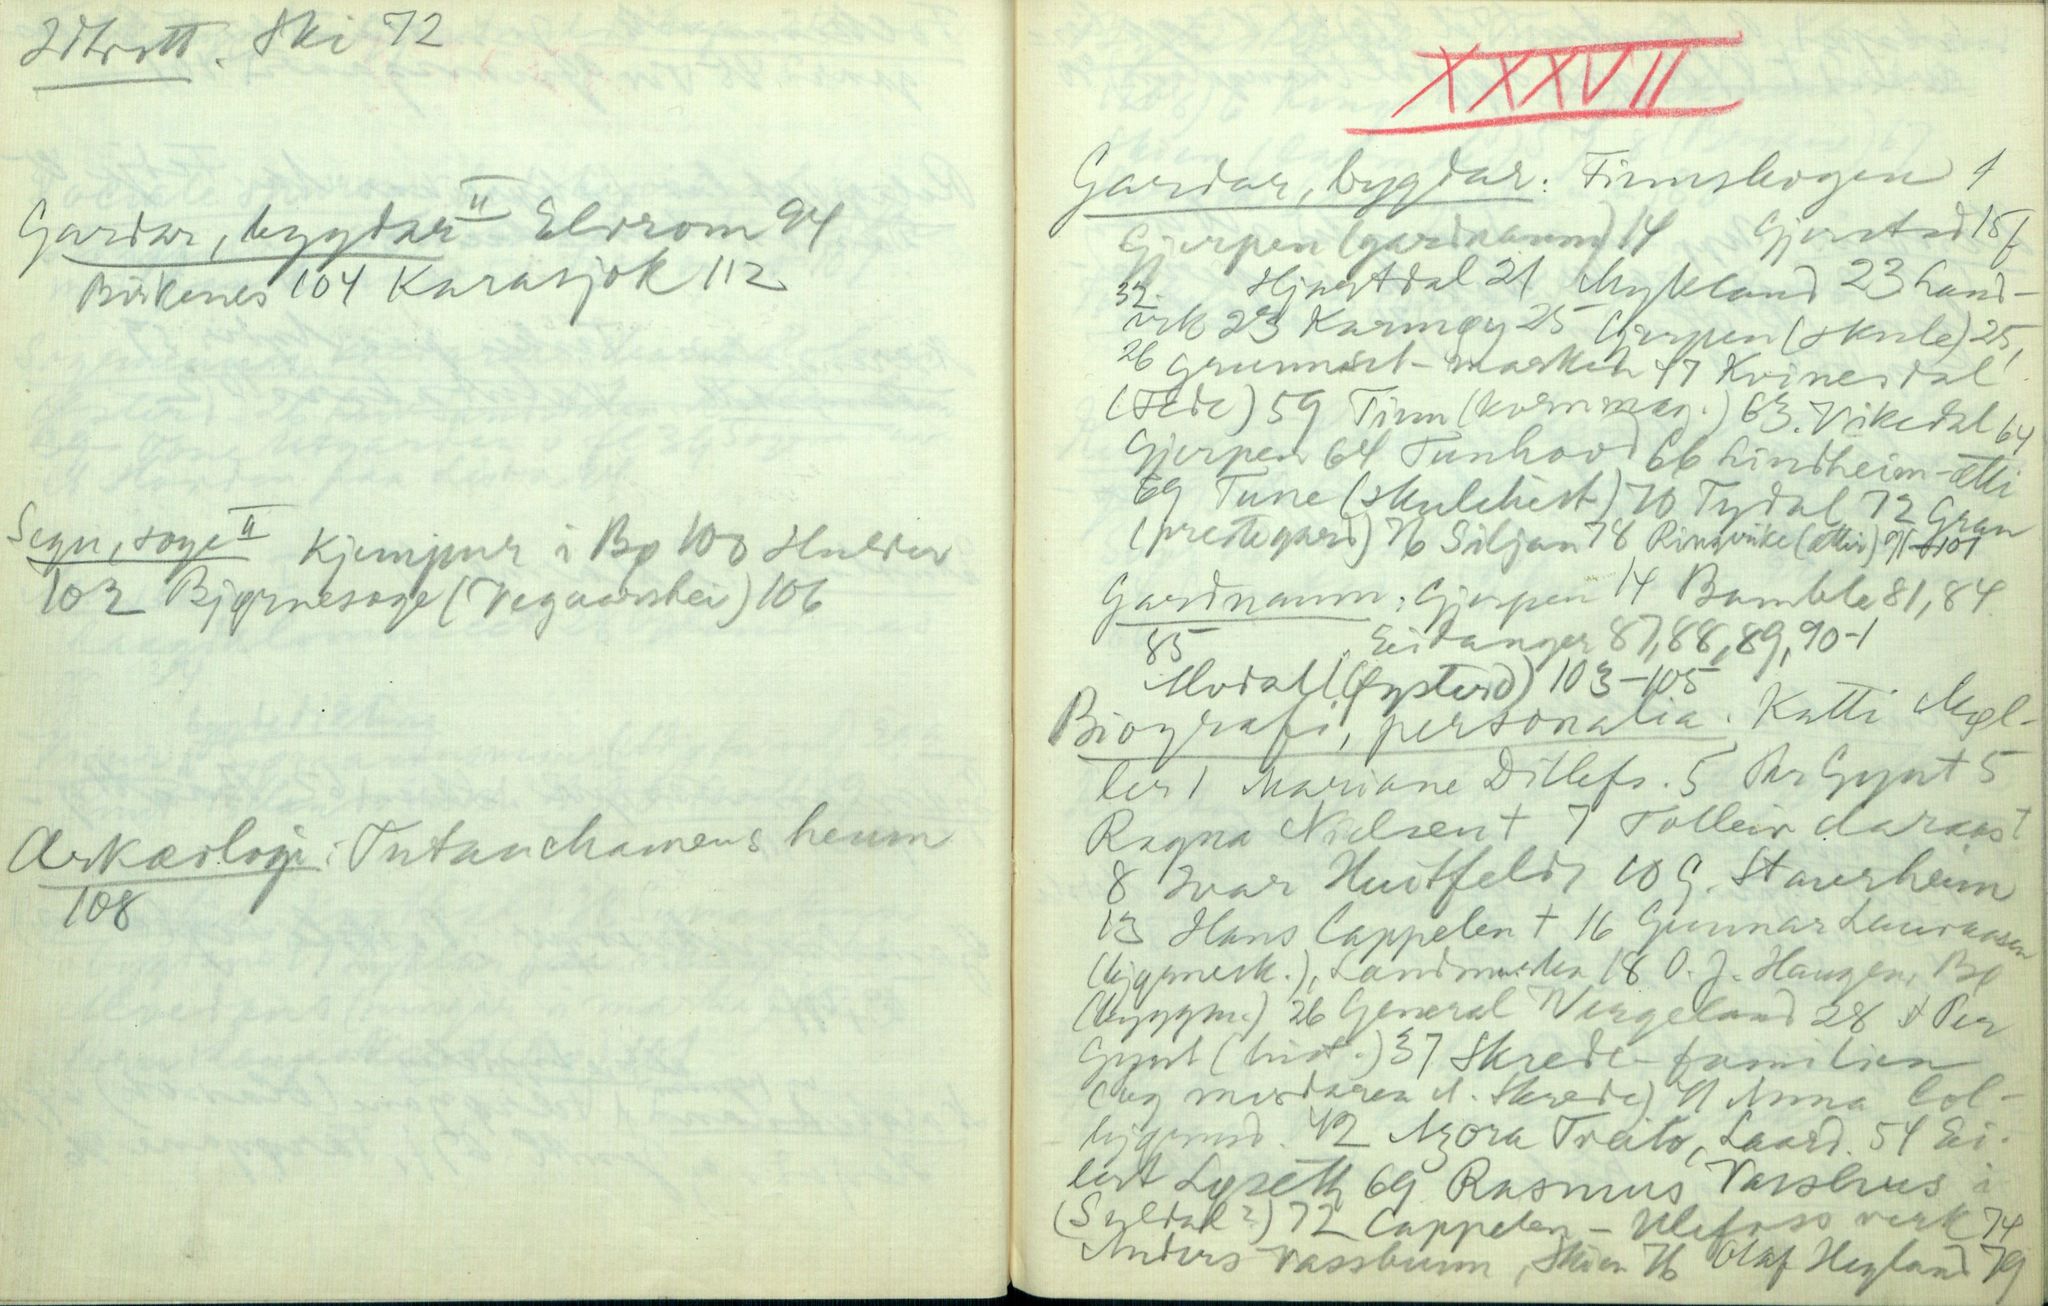 Idrott. Ski 72
Gardar, bygdar II Elvrom 94
Birkenes 104 Karasjok 112
Segn, soge II Kjempur i Bø 100 Hulder
102 Bjørnesoge (Vegaarshei) 106
Arkæologi: Tutanchamens heim
108
XXXVII
Gardar, bygdar: Finnskogen 1
Gjerpen (gardnamn) 14 Gjerstad 15f
32 Hjartdal 21 Mykland 23 Land-
vik 23 Karmøy 25 Gjerpen (skule) 25,
26 Grunnset-marken 47 Kvinesdal
(Fede) 59 Tinn (kornmag.) 63. Vikedal 64
Gjerpen 64 Tunhovd 66 Lindheim-ætti
69 Tune (skulehist.) 70 Tydal 72 Gran
(prestegard) 76 Siljan 78 Ringerike (ættir) 91-101
Gardnamn: Gjerpen 14 Bamble 81, 84
85 Eidanger 87, 88, 89, 90-1
Modahl (fysterd) 103-105
Biografi, personalia. Katti Møl-
ler 1 Mariane Ditlefs. 5 Per Gynt 5
Ragna Nielsen † 7 Tolleiv
8 Ivar Huitfeldt 10 G. Staverheim
13 Hans Cappelen † 16 Gunnar Lauvaasen
(bjørnesk.), Landmarka 18 O. J. Haugen, Bø
(byggm.) 26 General Wergeland 28 Per
Gynt (hist.) 37 Skrede-familien
(og mordaren N. Skrede) 41 Anna Col-
bjørnsd. 42 Azora Treito, Laard. 54 Ei-
lert Lyseth 69 Rasmus Vasshus i
(Suldal?) 72 Cappelen - Ulefoss verk 74
Anders Vassbunn, Skien 76 Olaf Høyland 79